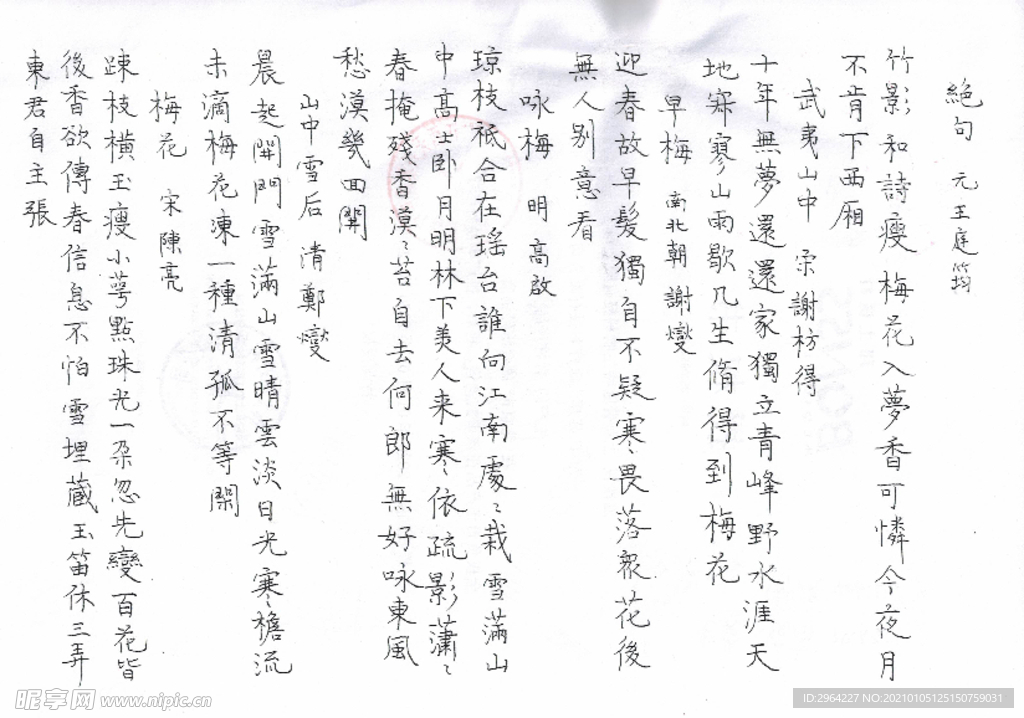 絕句 元 王庭筠
竹影和詩瘦 梅花入夢香可憐今夜月
不肯下西厢
武夷山中 宋 謝枋得
十年無夢還還家獨立青峰野水涯天
地寂寥山雨歇几生脩得到梅花
早梅 南北朝 謝燮
迎春故早髮獨自不疑寒畏落衆花後
無人别意看
咏梅 明 高啟
琼枝祗合在瑶台誰向江南處〻栽雪滿山
中高士卧月明林下美人来寒〻依疏影蕭〻
春掩殘香漠〻苔自去何郎無好咏東風
愁漠幾回開
山中雪后 清 鄭燮
晨起開門雪滿山雪晴雲淡日光寒〻檐流
未滴梅花凍一種清孤不等閑
梅花 宋 陳亮
踈枝横玉瘦小萼點珠光一朶忽先變百花皆
後香欲傳春信息不怕雪埋藏玉笛休三弄
東君自主張
昵享网 www.nipic.cn
ID:2964227 NO:20210105125150759031